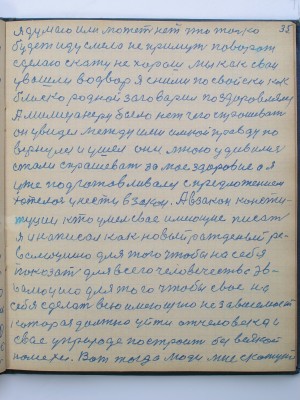 я думаю или может нет это только 35
будет иду смело не примут поворот
сделаю скажу не хорош мы как свои
у вошли во двор я с ними по свойски как
близко родной заговорил поздоровляюсь
А милиционеру было нет чего спрашивать
он увидел между ими и мной правду по
вернулся и ушел они мною удивились
стали спрашевать за мое здоровие а я
уже подготовливаюсь с предложением
хотелся учесть в закон. А в закон консти-
туции кто умел свае имеющие писат
я и написал как новый рожденый ре-
волюцию для того чтобы на себя
показат для всего человечество эв-
волюцию для того чтобы свае на
себя сделат всю имеющую независемост
которая должно уйти от человека и
свае у природе построит без всякой
помехи. Вот тогда люди мне скажут